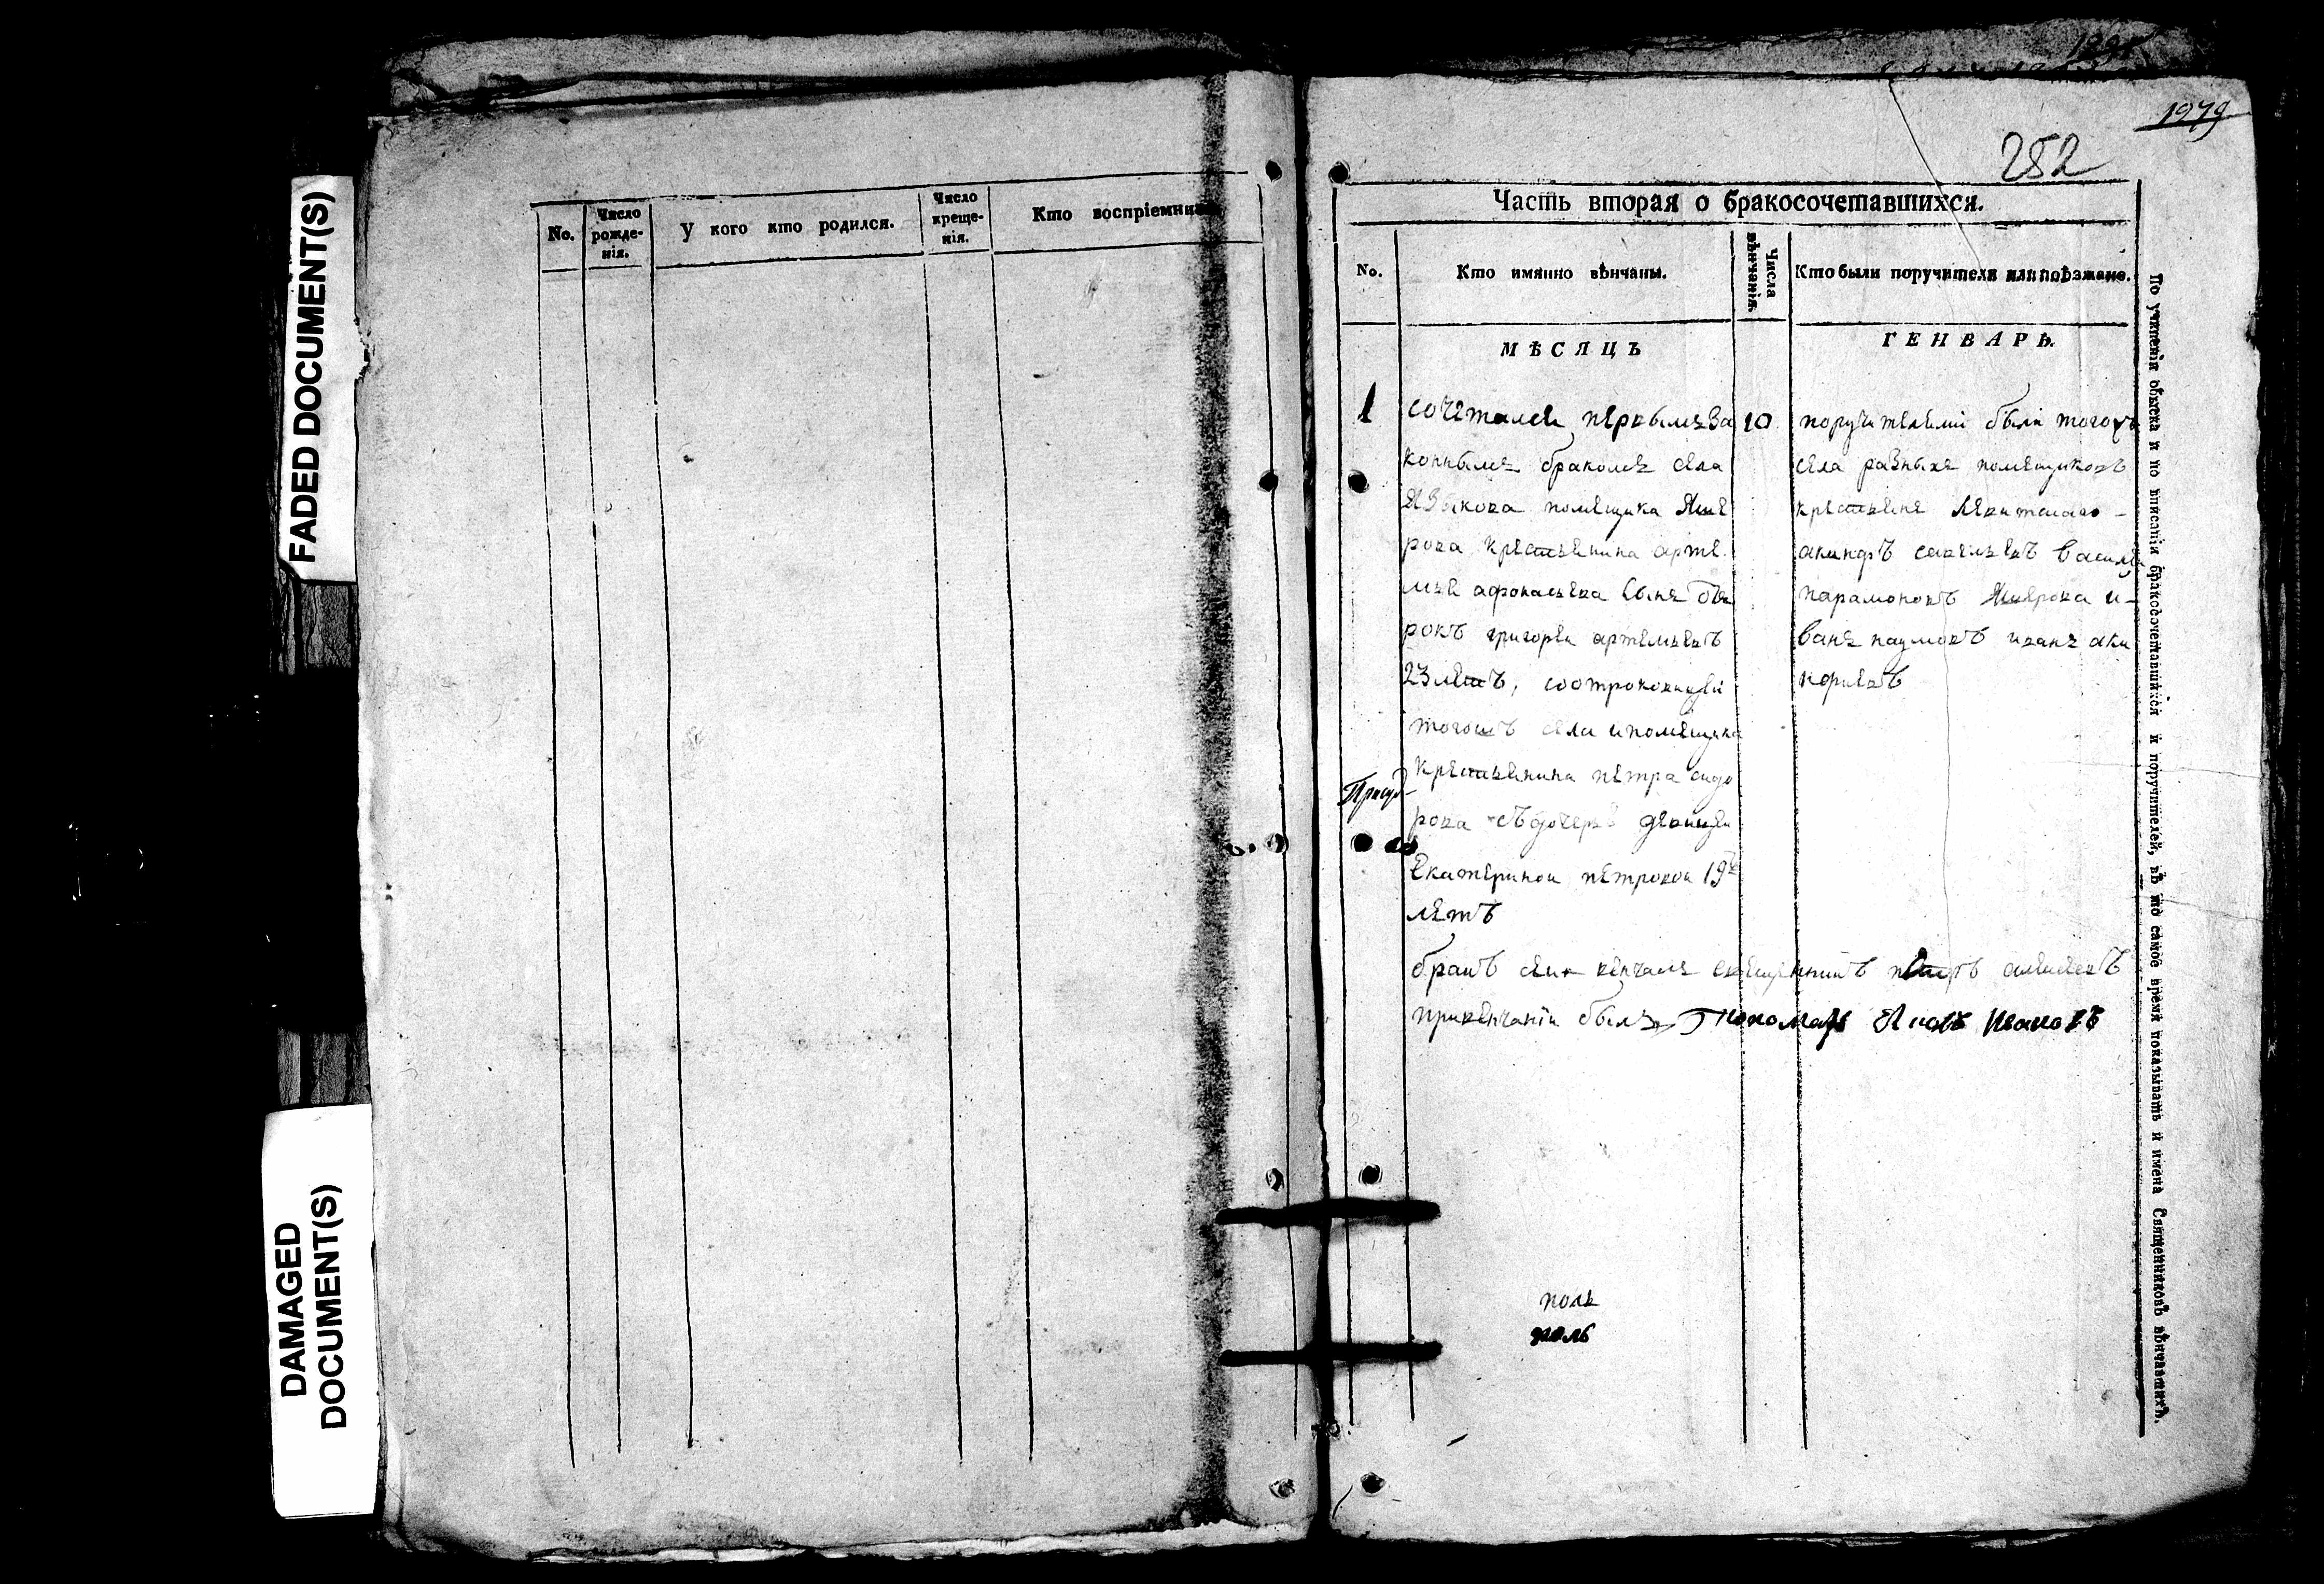 FADED DOCUMENT(S)
DAMAGED
DOCUMENT(S)
No.
Число
рожде-
нія.
У кого кто родился.
Число
креще-
нія.
Кто воспріемники
1979
252
Часть вторая о бракосочетавшихся.
No.
Кто имянно вѣнчаны.
Числа
вѣнчанія.
Кто были поручители или поѣзжане.
МѢСЯЦЪ
ГЕНВАРЬ.
1
сочетался первымъ за
коннымъ бракомъ села
языкова помѣщика
рова крестьянина арте
мья афонасьева сынъ от
рокъ григореи артемьевъ
23 летъ, соотроковицей
тогожъ села ипомѣщика
крестьянина петра сидо
рова съ дочерью девицей
Екатериной петровой 19
летъ
10
поручителями были тогожъ
села разныхъ помѣщиковъ
крестьяне
акинфъ савельевъ васили
парамоновъ и
ванъ наумовъ иванъ
бракъ сеи венчалъ священникъ петръ алексеевъ
привенчаніи былъ Пономарь Яковъ Ивановъ
По учиненіи обыска и по вписаніи бракосочетавшихся и поручителей, въ то самое время показывать и имена Священниковъ вѣнчавшихъ.